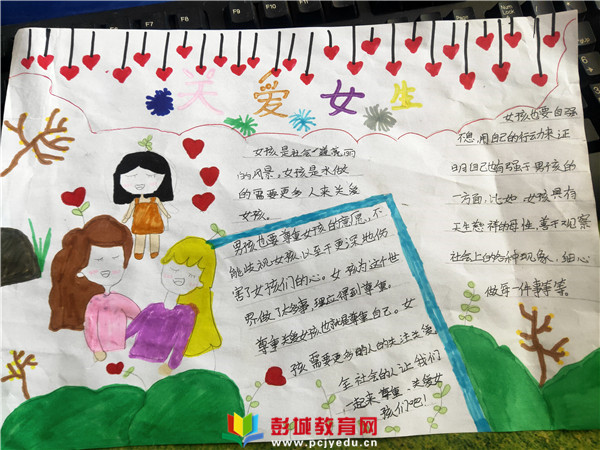 关爱女生
女孩是社会一道亮丽
的风景，女孩是水做
的需要更多人来关爱
女孩。
男孩也要尊重女孩的意愿，不
能歧视女孩以至于更深地伤
害了女孩们的心。女孩为这个世
界做了太多事，理应得到尊重。
尊重关爱女孩也就是尊重自己。女
孩需要更多的人的关注关爱
全社会的人让我们
一起来尊重、关爱女
孩们吧！
女孩也要自强
不息，用自己的行动来证
明自己也有强于男孩的
一方面，比如女孩具有
天生慈祥的母性，善于观察
社会上的各种现象，细心
做每一件事等。
Num
Lock
彭城教育网
www.pcjyedu.cn